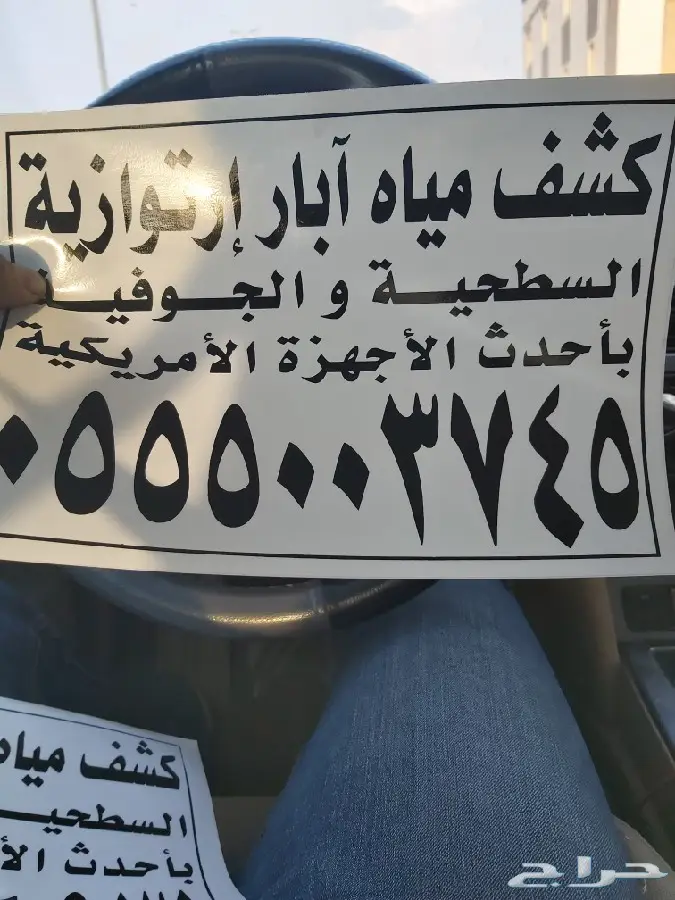 كشف مياه آبار إرتوازية
السطحية و الجوفية
بأحدث الأجهزة الأمريكية
٠٥٥٥٠٠٣٧٤٥
كشف مياه
السطحيـ
بأحدث الأ
حراج